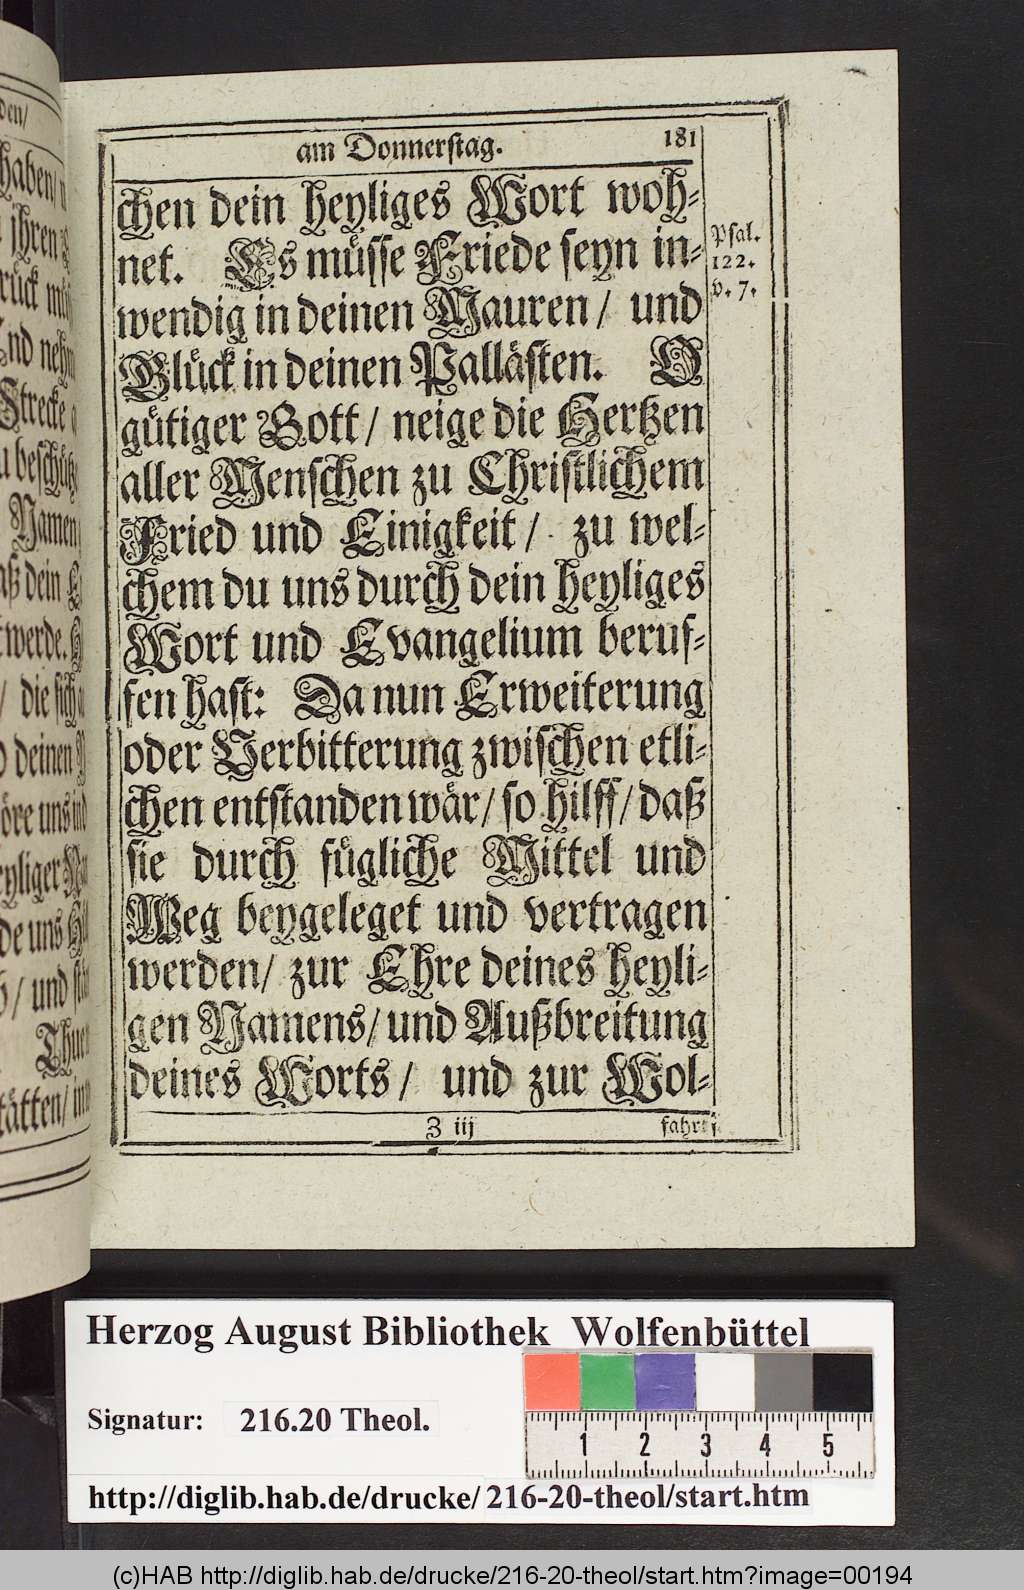 den/
haben/
ihren
rück
nehm
Strecke
beschütz
Namen
daß dein
werde.
/ die sich
deinen
höre uns
heyliger
uns
/ und
Thue
stätten/
am Donnerstag. 181
chen dein heyliges Wort woh-
net. Es müsse Friede seyn in-
wendig in deinen Mauren / und
Glück in deinen Pallästen. O
gütiger Gott / neige die Hertzen
aller Menschen zu Christlichem
Fried und Einigkeit / zu wel-
chem du uns durch dein heyliges
Wort und Evangelium beruf-
fen hast: Da nun Erweiterung
oder Verbitterung zwischen etli-
chen entstanden wär / so hilff / daß
sie durch fügliche Mittel und
Weg beygeleget und vertragen
werden / zur Ehre deines heyli-
gen Namens / und Außbreitung
deines Worts / und zur Wol-
Z iij fahrt
Psal.
122.
v. 7.
Herzog August Bibliothek Wolfenbüttel
Signatur: 216.20 Theol.
1 2 3 4 5
http://diglib.hab.de/drucke/216-20-theol/start.htm
(c)HAB http://diglib.hab.de/drucke/216-20-theol/start.htm?image=00194